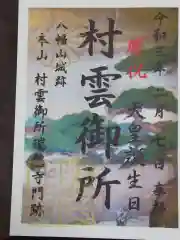 令和三年二月二七日
奉祝
天皇誕生日
村雲御所
八幡山城跡
本山 村雲御所瑞龍寺門跡